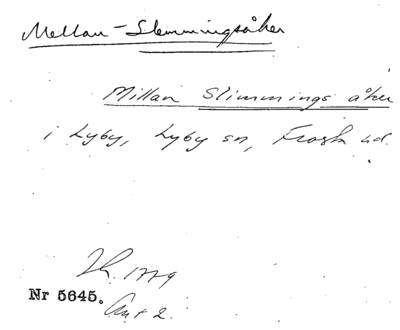 Mellan-Slemmingsåker
Millan Slimmings åker
i Lyby, Lyby sn, Frosta hd.
1779
Nr 5645.
2.